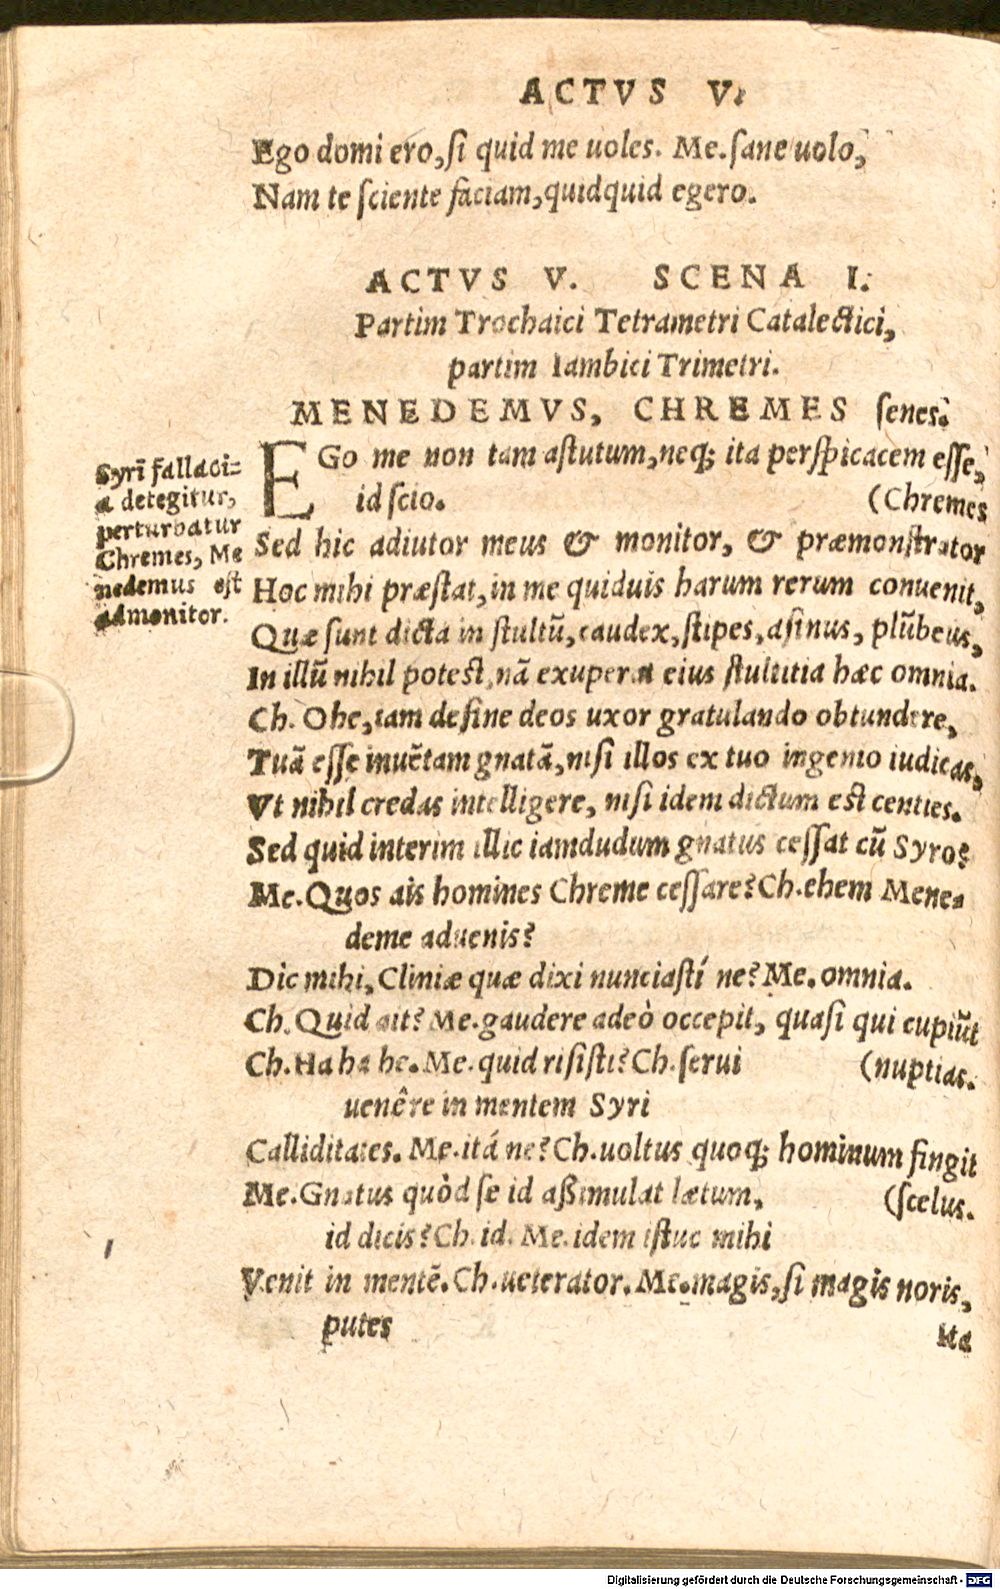 ACTVS V.
Ego domi ero, ſi quid me uoles. Me. ſane uolo,
Nam te ſciente faciam, quidquid egero.
ACTVS V. SCENA I.
Partim Trochaici Tetrametri Catalectici,
partim Iambici Trimetri.
MENEDEMVS, CHREMES ſenes.
Syri fallaci-
a detegitur,
perturbatur
Chremes, Me
nedemus eſt
admonitor.
EGo me non tam aſtutum, neq; ita perſpicacem eſſe,
id ſcio. (Chremes
Sed hic adiutor meus & monitor, & præmonſtrator
Hoc mihi præſtat, in me quiduis harum rerum conuenit,
Quæ ſunt dicta in ſtultū, caudex, ſtipes, aſinus, plūbeus,
In illū nihil poteſt, nā exuperat eius ſtultitia hæc omnia.
Ch. Ohe, iam deſine deos uxor gratulando obtundere,
Tuā eſſe inuētam gnatā, niſi illos ex tuo ingenio iudicas,
Vt nihil credas intelligere, niſi idem dictum eſt centies.
Sed quid interim illic iamdudum gnatus ceſſat cū Syro?
Me. Quos ais homines Chreme ceſſare? Ch. ehem Mene-
deme aduenis?
Dic mihi, Cliniæ quæ dixi nunciaſtí ne? Me. omnia.
Ch. Quid ait? Me. gaudere adeò occepit, quaſi qui cupiūt
Ch. Ha ha he. Me. quid riſiſti? Ch. ſerui (nuptias.
uenêre in mentem Syri
Calliditates. Me. itá ne? Ch. uoltus quoq; hominum fingit
Me. Gnatus quòd ſe id aßimulat lætum, (ſcelus.
id dicis? Ch. id. Me. idem iſtuc mihi
Venit in mentē. Ch. ueterator. Me. magis, ſi magis noris,
putes ita
Digitalisierung gefördert durch die Deutsche Forschungsgemeinschaft - DFG